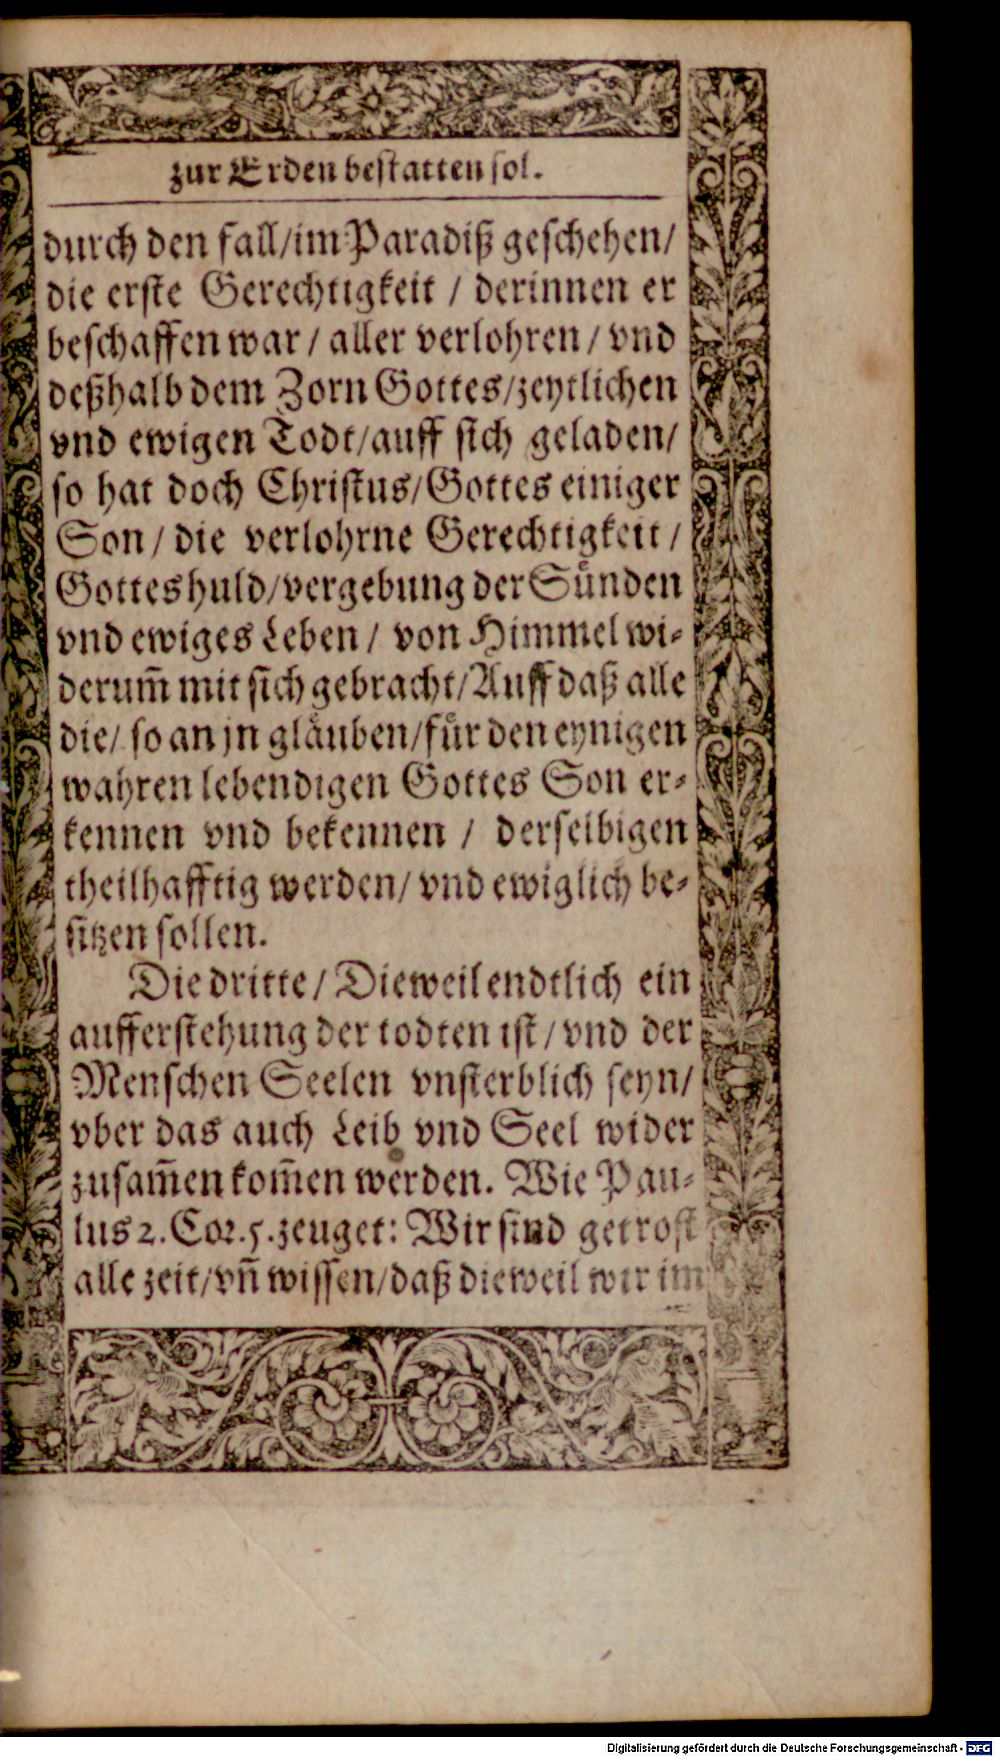 zur Erden bestatten sol.
durch den fall/im Paradiß geschehen/
die erste Gerechtigkeit / derinnen er
beschaffen war / aller verlohren / vnd
deßhalb dem Zorn Gottes/zeytlichen
vnd ewigen Todt/auff sich geladen/
so hat doch Christus/Gottes einiger
Son / die verlohrne Gerechtigkeit /
Gottes huld/vergebung der Suͤnden
vnd ewiges Leben / von Himmel wi-
derum̃ mit sich gebracht/Auff daß alle
die/ so an jn glaͤuben/fuͤr den eynigen
wahren lebendigen Gottes Son er-
kennen vnd bekennen / derselbigen
theilhafftig werden/ vnd ewiglich be-
sitzen sollen.
Die dritte / Dieweil endtlich ein
aufferstehung der todten ist/ vnd der
Menschen Seelen vnsterblich seyn/
vber das auch Leib vnd Seel wider
zusam̃en kom̃en werden. Wie Pau-
lus 2. Cor. 5. zeuget: Wir sind getrost
alle zeit/vñ wissen/daß dieweil wir im
Digitalisierung gefördert durch die Deutsche Forschungsgemeinschaft - DFG